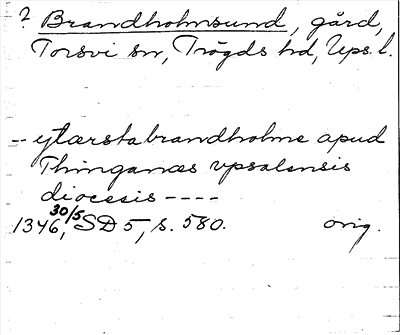 ? Brandholmsund, gård,
Torsvi sn, Trögds hd, Ups. l.
-- ytærstabrandholme apud
Thinganæs vpsalensis
diocesis ----
1346, 30/5, SD 5, s. 580. orig.